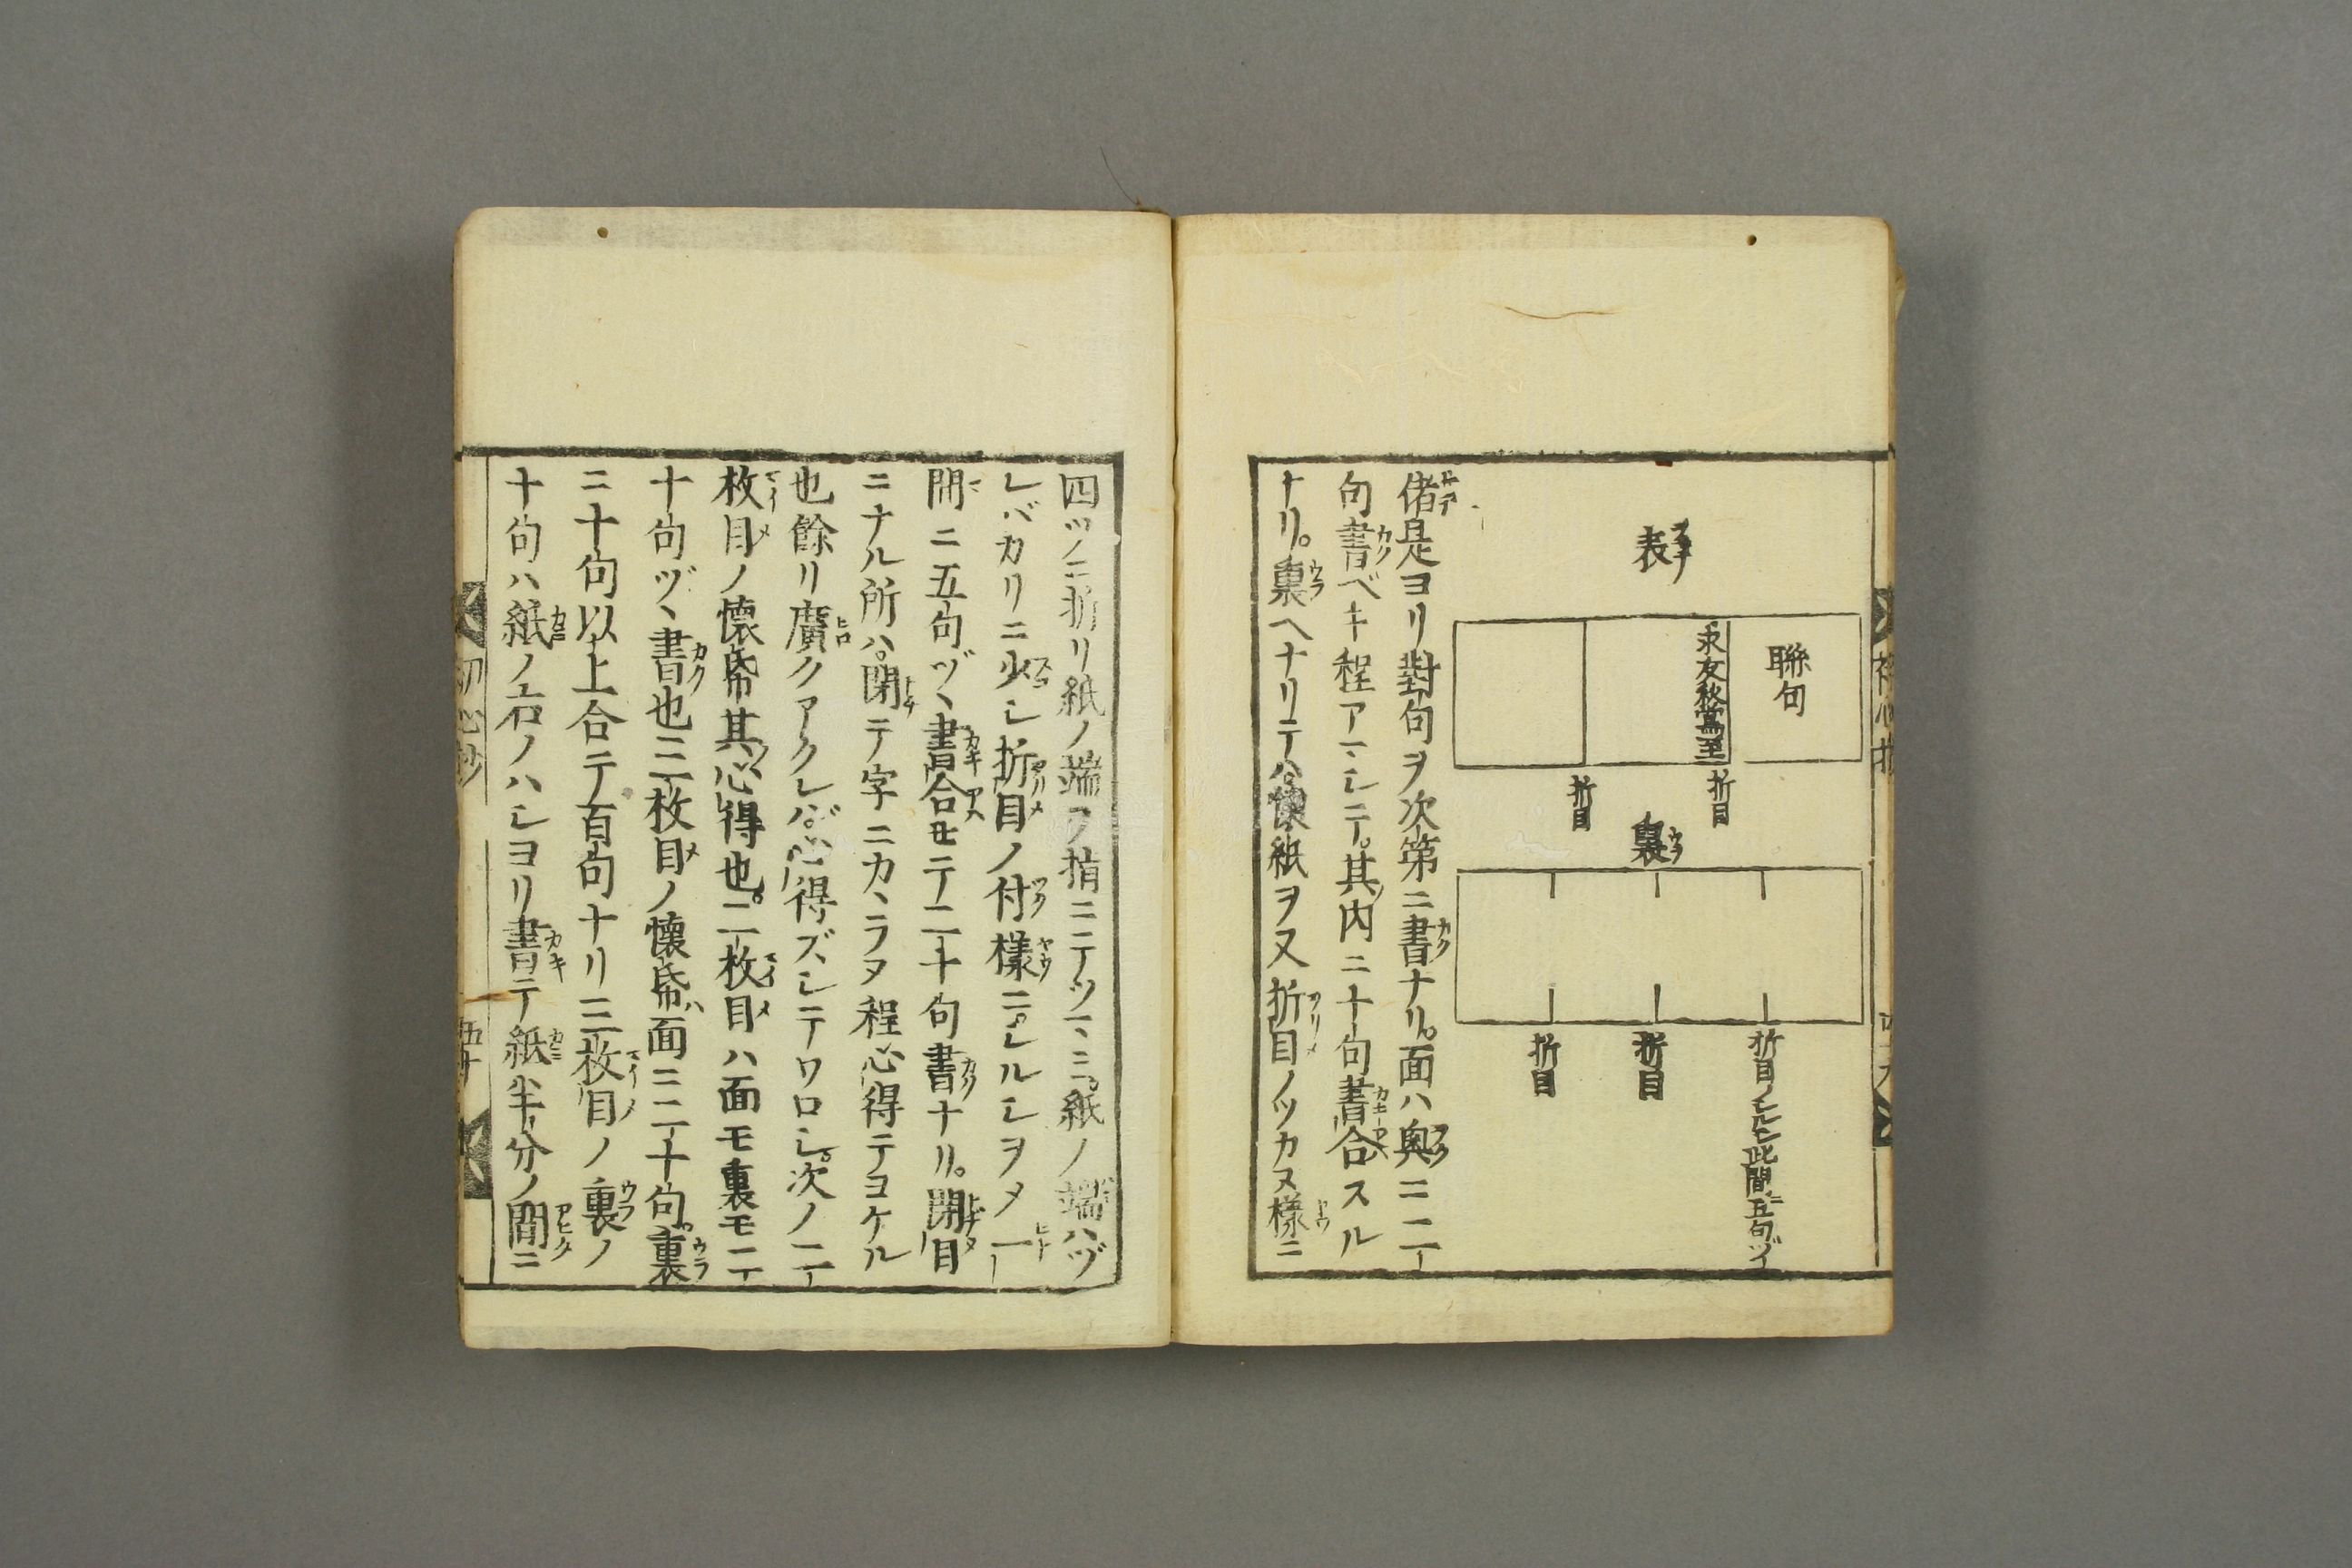 表
聯句
求友黎鶯至
折目
折目
裏
折目ノシルシ此間ニ五句ヅヽ
折目
折目
偖是ヨリ對句ヲ次第ニ書ナリ。面ハ奥ニ二十
句書ベキ程アマシテ。其内ニ十句書合スル
ナリ。裏ヘナリテハ懐紙ヲ又折目ノツカヌ様ニ
四ツニ折リ紙ノ端ヲ指ニテツマミ紙ノ端ハヅ
レバカリニ少シ折目ノ付様ニシルシヲメ一
間ニ五句ヅヽ書合セテ二十句書ナリ。閉目
ニナル所ハ。閉テ字ニカヽラヌ程心得テヨケル
也餘リ廣クアクレバ心得ズシテワロシ。次ノ二
枚目ノ懐帋其心得也。二枚目ハ面モ裏モ二
十句ヅヽ書也三枚目ノ懐帋ハ面ニ二十句。裏
ニ十句以上合テ百句ナリ三枚目ノ裏ノ
十句ハ紙ノ右ノハシヨリ書テ紙半分ノ間ニ
五十